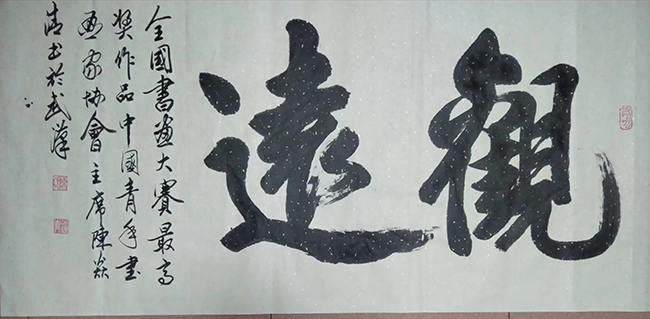 觀遠
全國書畫大賽最高
獎作品中國青年書
畫家協會主席陳焱
清書於武漢